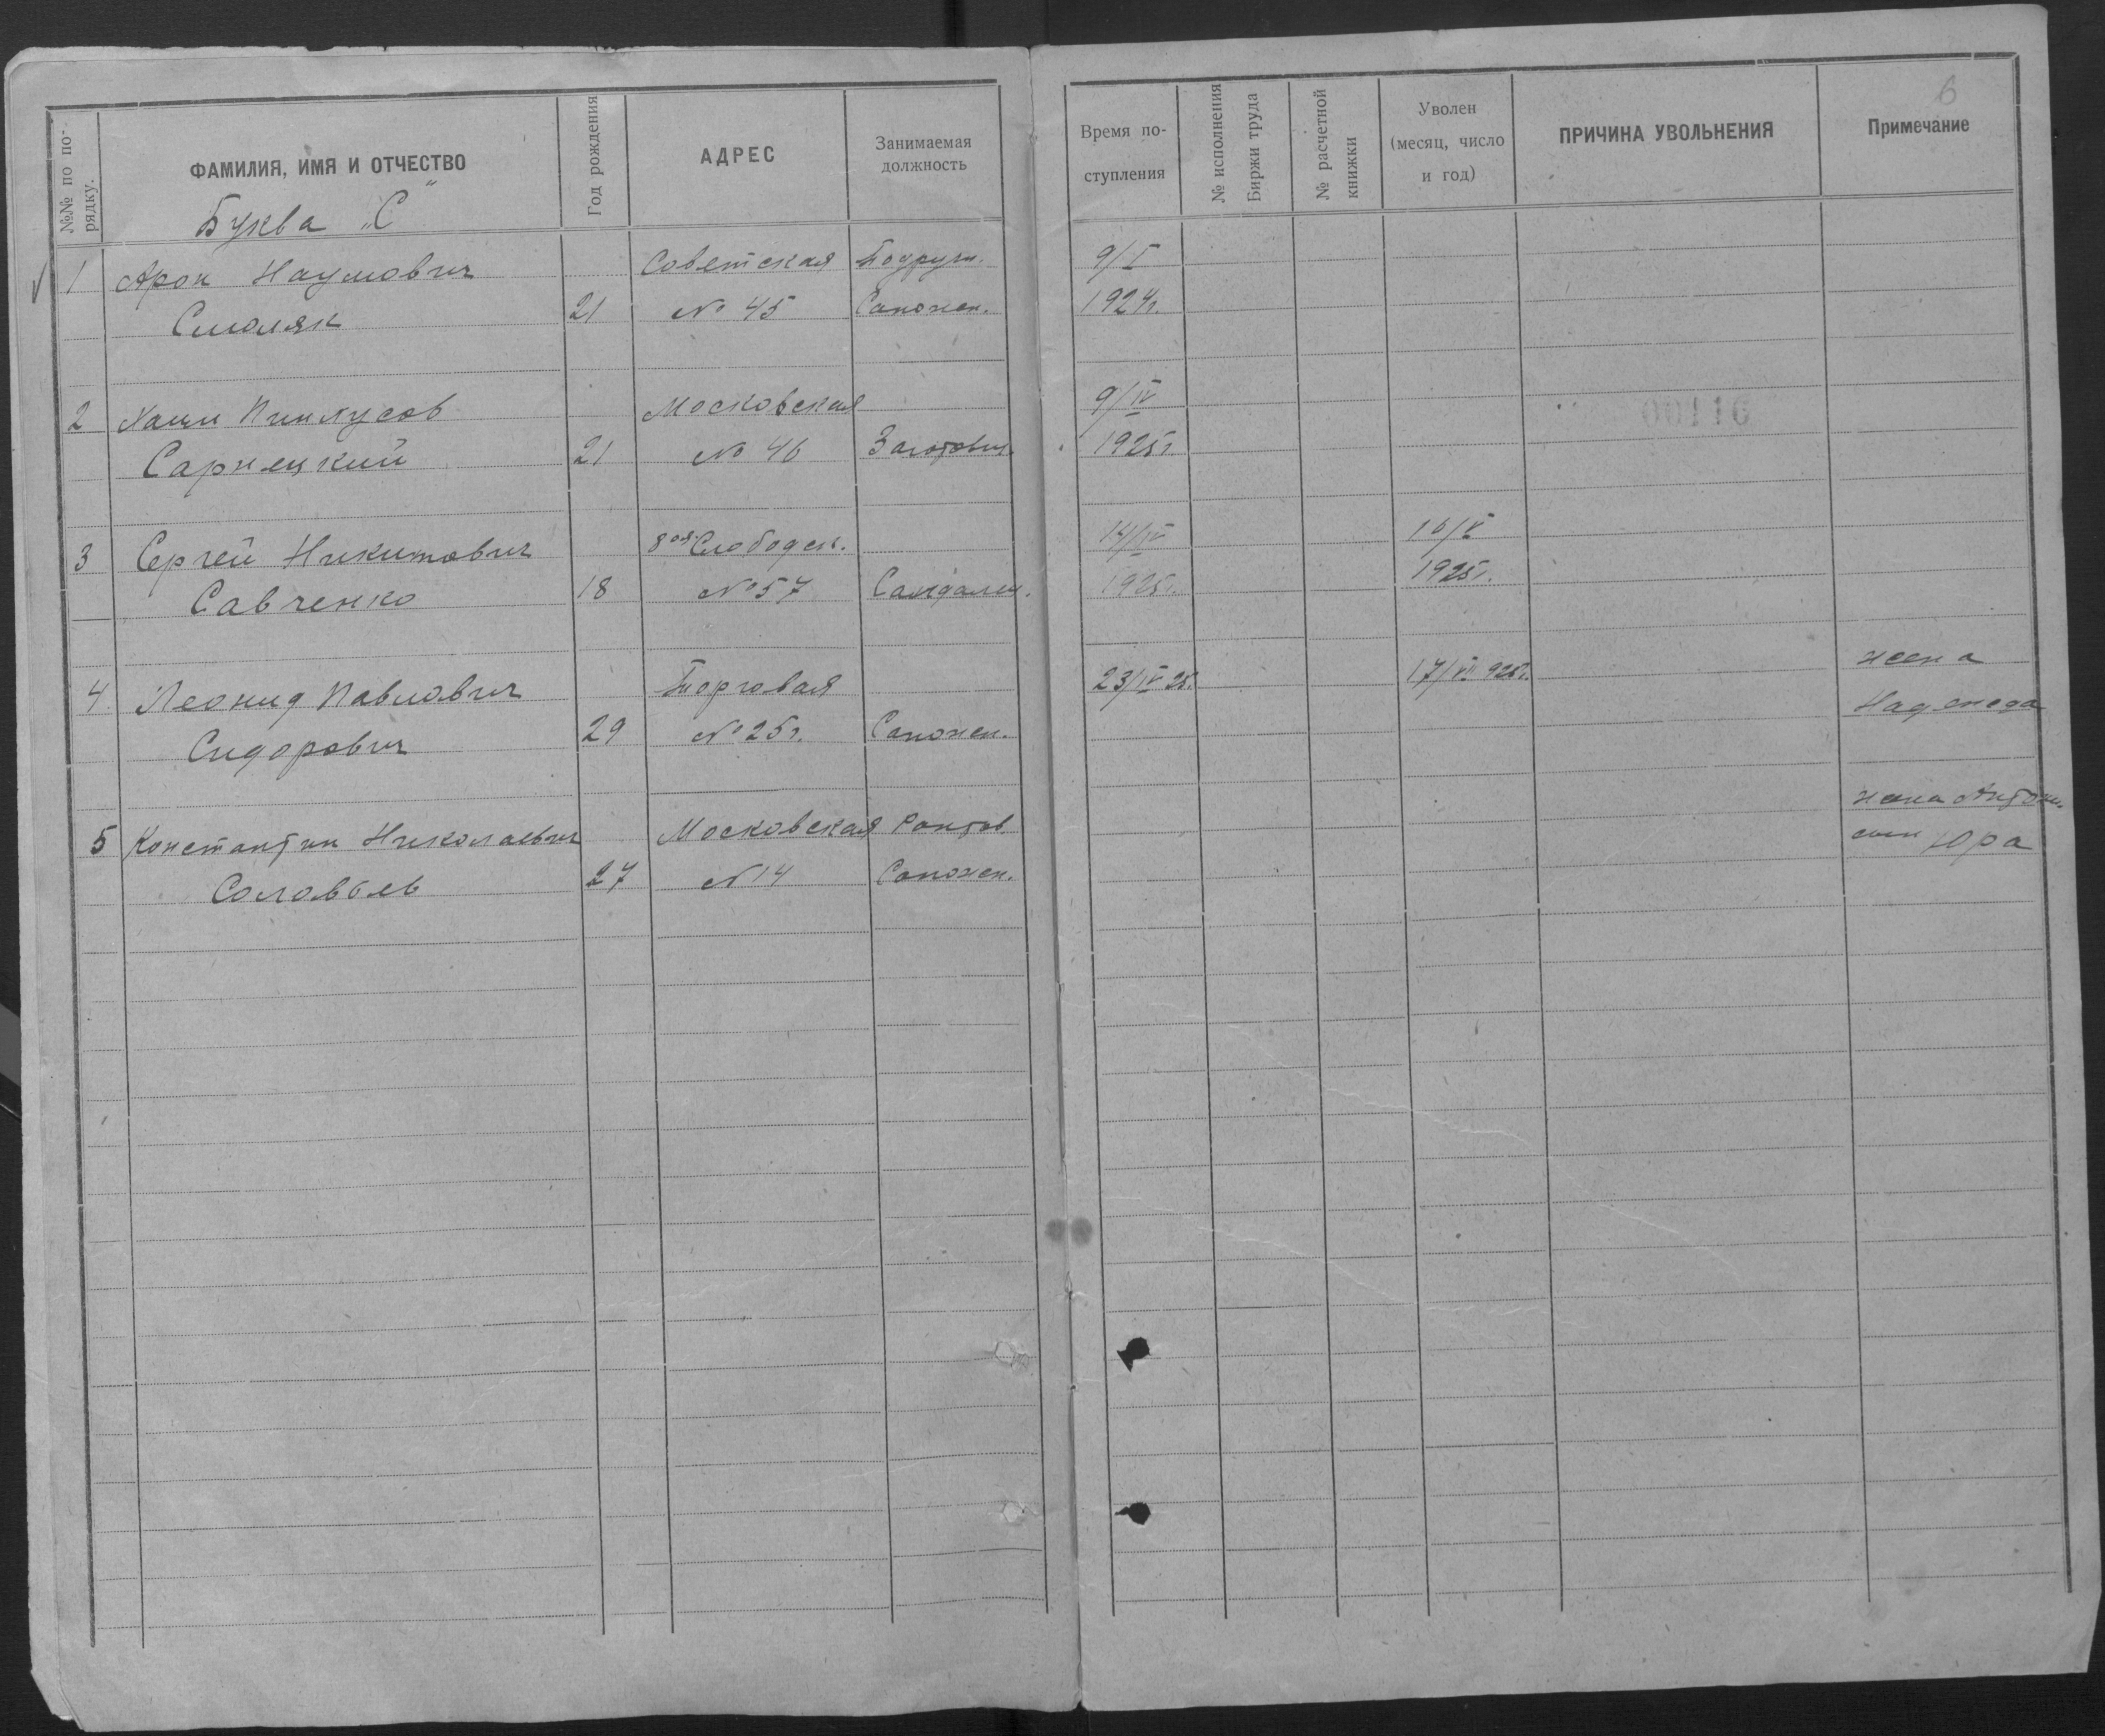 №№ по по-
рядку.
ФАМИЛИЯ, ИМЯ И ОТЧЕСТВО
Год рождения
АДРЕС
Занимаемая
должность
Время по-
ступления
№ исполнения
Биржи труда
№ расчетной
книжки
Уволен
(месяц, число
и год)
ПРИЧИНА УВОЛЬНЕНИЯ
Примечание
6
Буква „С"
1 Арон Наумович Советская Подручн. 9/I
Смоляк 21 № 45 Сапожн. 1924г.
2 Пинхусов Московская 9/IV
Сарнецкий 21 № 46 Заготовщ. 1925г
00116
3 Сергей Никитович 8ая Слободск. 14/IV 16/V
Савченко 18 № 57 Сандалщ. 1925г. 1925г.
4 Леонид Павлович Торговая 23/IV 25. 17/VII 925г. жена
Сидорович 29 № 25г. Сапожн. Надежда
5 Константин Николаевич Московская жена Антон.
Соловьев 27 № 14 Сапожн. сын Юра